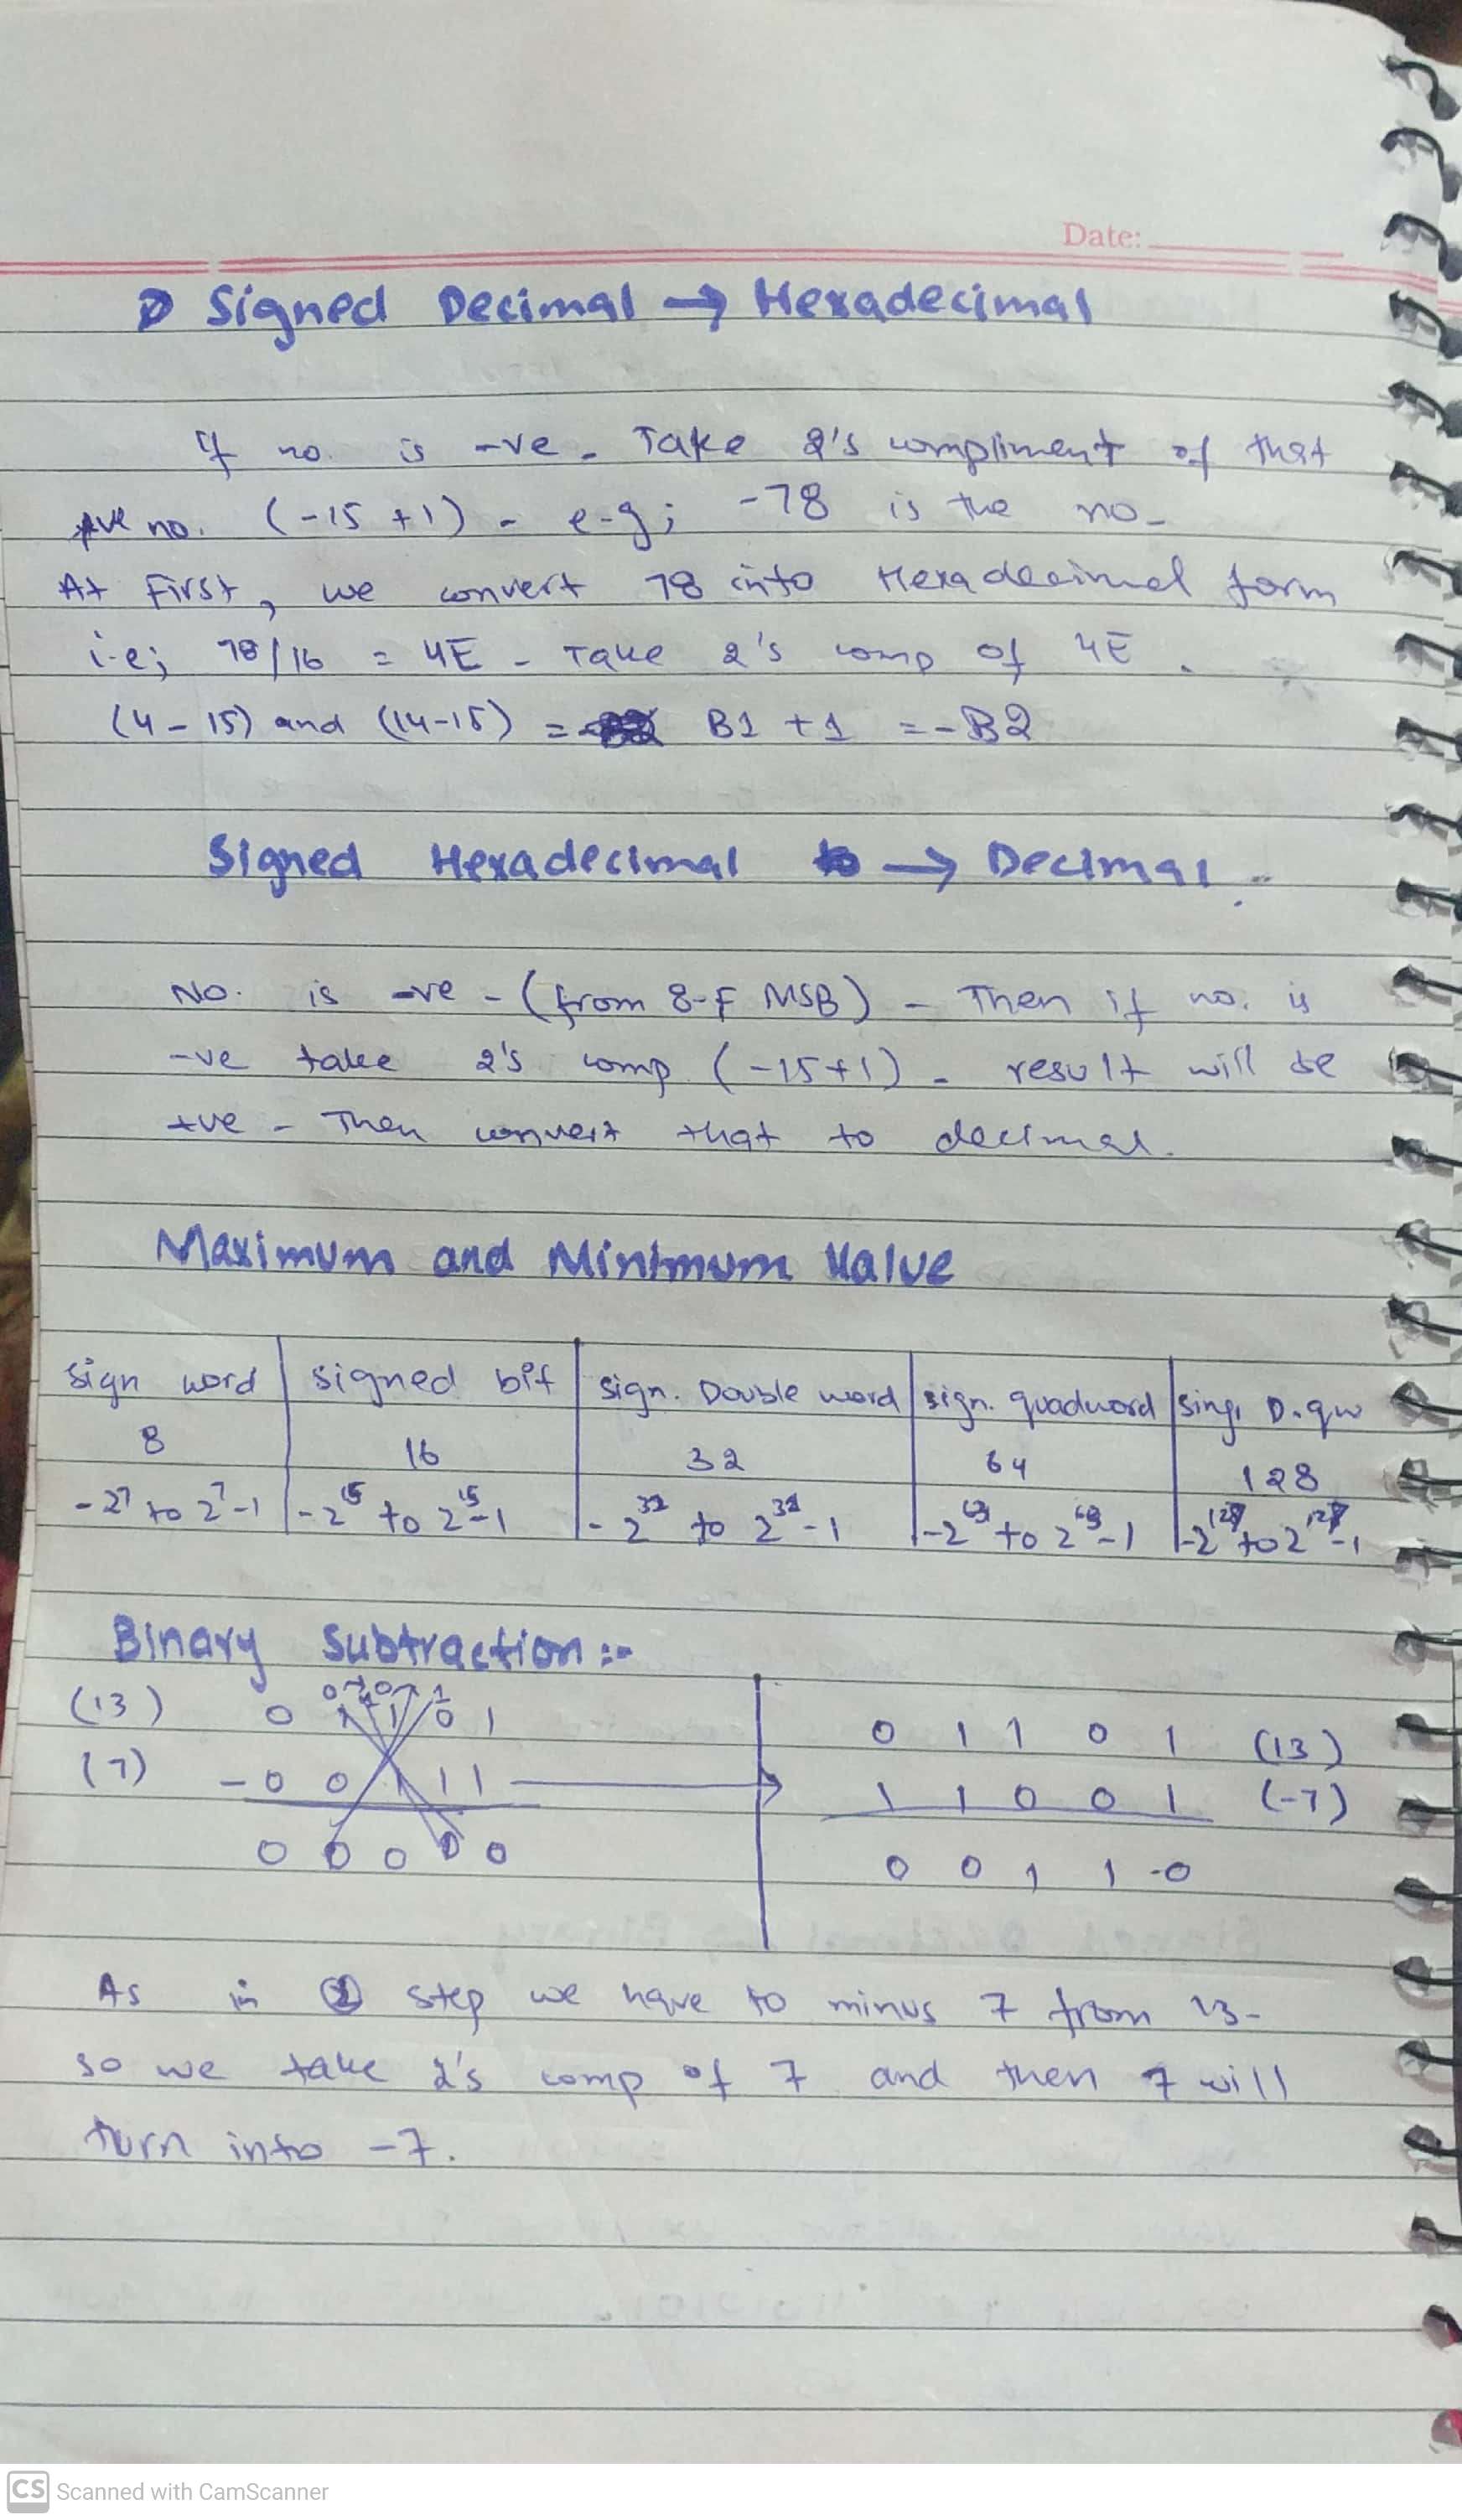 Date:
Signed Decimal → Hexadecimal
If no. is -ve. Take 2's compliment of that
+ve no. (-15 +1). e.g; -78 is the no.
At First, we convert 78 into Hexadecimal form
i.e; 78/16 = 4E. Take 2's comp of 4E.
(4-15) and (14-15) = B1 +1 = -B2
Signed Hexadecimal → Decimal.
No. is -ve. (from 8-F MSB). Then if no. is
-ve take 2's comp. (-15+1). result will be
+ve. Then convert that to decimal.
Maximum and Minimum Value
sign word | signed bit | sign. Double word | sign. quadword | sing. D.qw
8 | 16 | 32 | 64 | 128
-2⁷ to 2⁷-1 | -2¹⁵ to 2¹⁵-1 | -2 to 2³¹-1 | -2⁶³ to 2⁶³-1 | -2¹²⁷ to 2¹²⁷-1
Binary Subtraction :-
(13) 0 1 1 0 1 | 0 1 1 0 1 (13)
(7) - 0 0 1 1 1 → 1 1 0 0 1 (-7)
0 0 0 0 0 | 0 0 1 1 0
As in step we have to minus 7 from 13.
so we take 2's comp of 7 and then 7 will
turn into -7.
CS Scanned with CamScanner